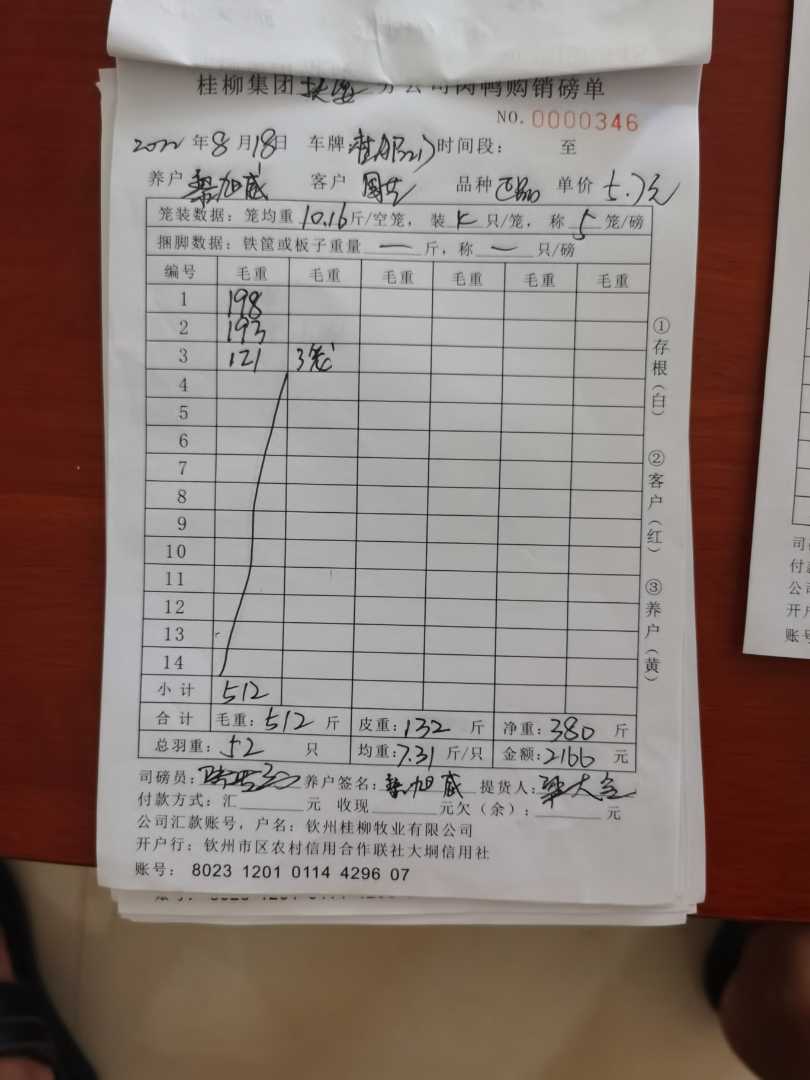 桂柳集团 分公司肉鸭购销磅单
NO. 0000346
2022年8月18日 车牌: 时间段: 至
养户 客户 品种 单价 5.7元
笼装数据: 笼均重 10.16 斤/空笼, 装 4 只/笼, 称 5 笼/磅
捆脚数据: 铁筐或板子重量 一 斤, 称 一 只/磅
编号 毛重 毛重 毛重 毛重 毛重 毛重
1 198
2 193
3 121 3笼
4
5
6
7
8
9
10
11
12
13
14
小计 512
合计 毛重: 512 斤 皮重: 132 斤 净重: 380 斤
总羽重: 52 只 均重: 7.31 斤/只 金额: 2166 元
司磅员: 养户签名: 提货人: 梁大
付款方式: 汇 元 收现 元欠(余): 元
公司汇款账号, 户名: 钦州桂柳牧业有限公司
开户行: 钦州市区农村信用合作联社大垌信用社
账号: 8023 1201 0114 4296 07
①存根(白)
②客户(红)
③养户(黄)